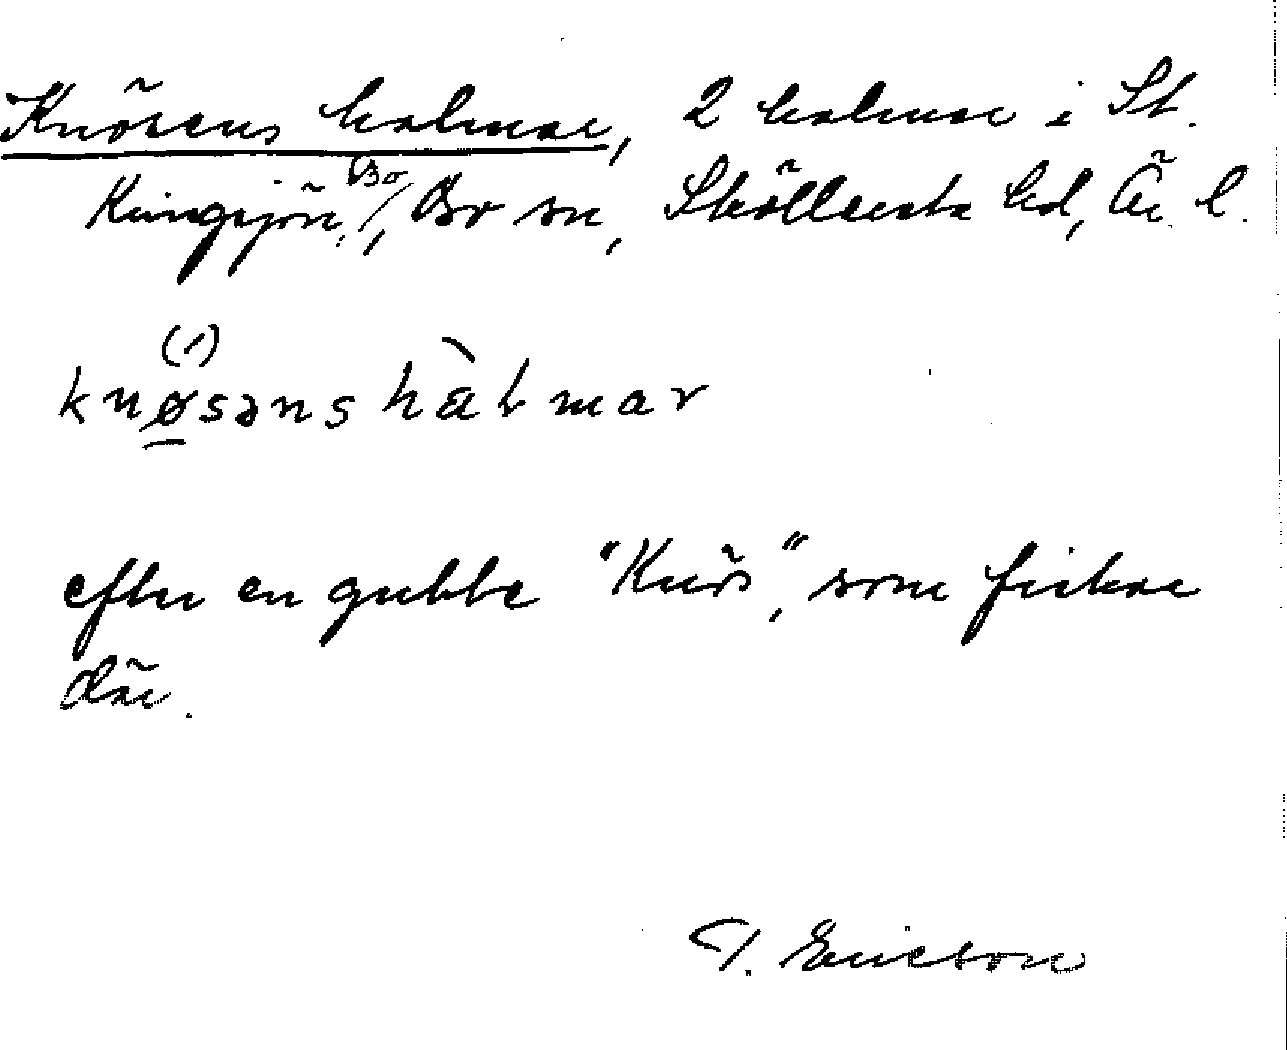 Knösens holmar, 2 holmar i St.
Kungsjön, Bo, Bo sn, Sköllersta hd, Än l.
(´) knøsəns hàlmar
efter en gubbe "Knös", som fiskar
där.
T. Ericson